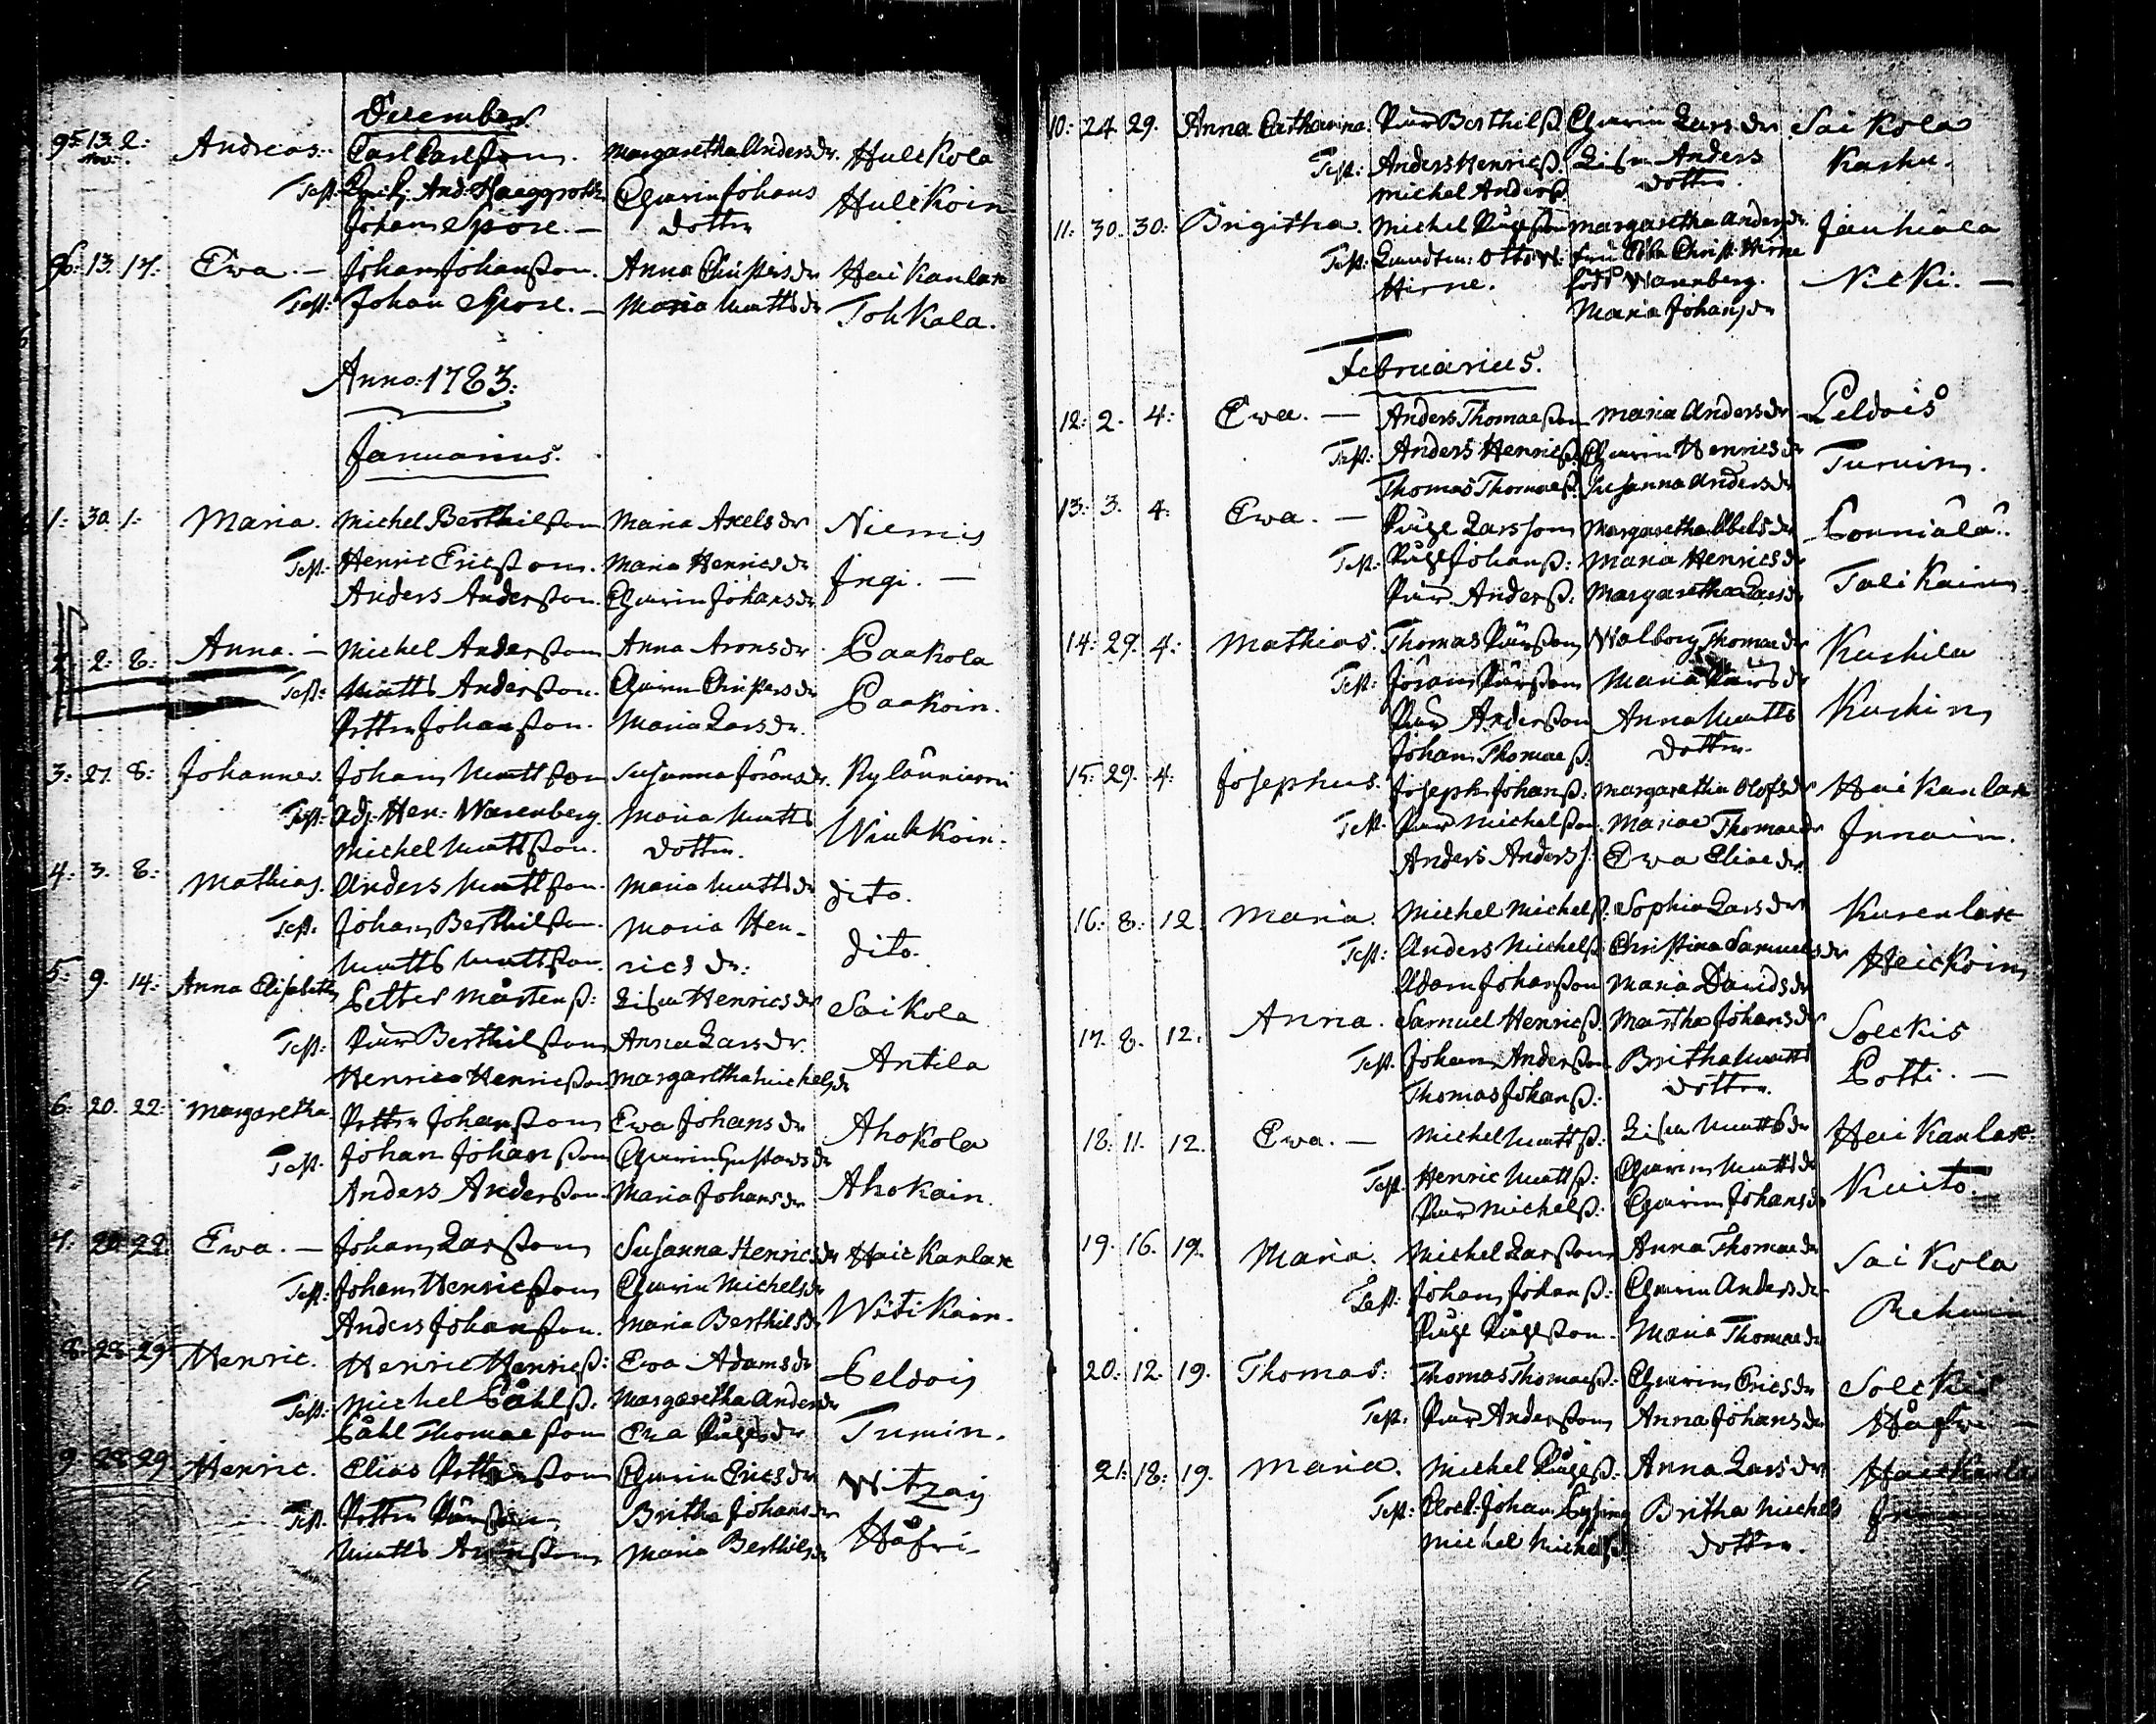 December.
95. 13. 2: Andreas: Carl Carlsson. Margaretha Anders dr. Hulckola
nov:
Test: And: Haeggroth Charin Johans Hulckoin
Johan Spore. — dotter
96: 13. 17: Ewa. — Johan Johansson. Anna Chisters dr Haickanlax
Test: Johan Spore. — Maria Matts dr Tohkala.
Anno: 1783:
Januarius.
1: 30. 1: Maria. Michel Berthilsson Maria Axels dr Niemis
Test: Henric Ericsson. Maria Henrics dr Ingi. —
Anders Andersson. Charin Johans dr
2: 2: 8: Anna. — Michel Andersson Anna Arons dr Paakola
Test: Matts Andersson. Charin Chisters dr Paakoin.
Petter Johansson. Maria Lars dr.
3: 27. 8: Johannes. Johan Mattsson Susanna Jörans dr. Kyläniemi
Test: Adj: Hen: Warenberg. Maria Matts Winkkoin.
Michel Mattsson. dotter.
4: 3. 8: Mathias. Anders Mattsson. Maria Matts dr dito.
Test. Johan Berthilsson. Maria Hen- dito.
Matts Mattsson. rics dr:
5: 9. 14: Anna Elisabeth Petter Mårtenss: Lisa Henrics dr Saikola
Test: Pär Berthilsson Anna Lars dr. Antila
Henric Henricsson Margaretha Michels dr
6: 20. 22: Margaretha. Petter Johansson Ewa Johans dr Ahokola
Test. Johan Johansson Charin Gustavs dr
Anders Andersson. Maria Johans dr Ahokain.
7: 20. 22: Ewa. — Johan Larsson Susanna Henrics dr Haickanlax
Test: Johan Henricsson Charin Michels dr
Anders Johansson. Maria Berthils dr Witikain.
8. 28. 29. Henric. Henric Henricss: Ewa Adams dr Peldois
Test: Michel Påhlss. Margaretha Anders dr
Påhl Thomaesson Ewa Påhls dr Tumin.
9. 28. 29. Henric. Elias Pettersson Charin Erics dr Witzais
Test. Petter Pärsson Britha Johans dr
Matts Maria Berthils dr Håfri-
10: 24. 29. Anna Catharina. Pär Berthilss Charin Lars dr Saikola
Test: Anders Henricss: Lisa Anders Kashu.
Michel Anderss. dotter.
11: 30. 30: Brigitha. Michel Påhlsson Margaretha Anders dr Jauhiala
Test: Otto W: Fru Ebba Christ: Hirne
Hirne. född Warenberg. Nicki. —
Maria Johans dr
Februarius.
12: 2. 4: Ewa. — Anders Thomaesson Maria Anders dr Peldois
Test: Anders Henricss. Charin Henrics dr Turuin.
Thomas Thomaess. Susanna Anders dr
13: 3. 4. Ewa. — Påhl Larsson Margaretha Abels dr Lonniälä.
Test: Påhl Johanss: Maria Henrics dr
Pär Anderss. Margaretha Lars dr Talikain
14: 29. 4: Mathias. Thomas Pärsson Walborg Thomae dr Kashila
Test: Jöran Pärsson Maria Pärs dr
Pär Andersson Anna Matts Kashin
Johan Thomaess. dotter.
15: 29. 4: Josephus. Joseph Johanss: Margaretha Olofs dr Haikanlax
Test. Pär Michelsson. Maria Thomae dr Innain.
Anders Anderss: Ewa Eliae dr
16: 8: 12. Maria. Michel Michelss: Sophia Lars dr Kurenlax
Test: Anders Michelss: Christina Samuels dr Heickoin
Adam Johansson Maria Davids dr
17. 8. 12. Anna. Samuel Henricss: Martha Johans dr Solckis
Test. Johan Andersson Britha Matts Potti. —
Thomas Johanss: dotter.
18: 11. 12. Ewa. — Michel Mattss: Lisa Matts dr Haikanlax
Test. Henric Mattss: Charin Matts dr
Pär Michelss. Charin Johans dr Kuito.
19. 16. 19. Maria. Michel Larsson Anna Thomae dr Saikola
Test: Johan Johanss: Charin Anders dr
Påhl Påhlsson. Maria Thomae dr Rehuin
20. 12. 19. Thomas: Thomas Thomaess: Charin Erics dr Solckis
Test. Pär Andersson Anna Johans dr Håfri —
21: 18: 19. Maria. Michel Påhlss: Anna Lars dr Haickanlax
Test: Clock. Johan Britha Michels
Michel Michelss. dotter.